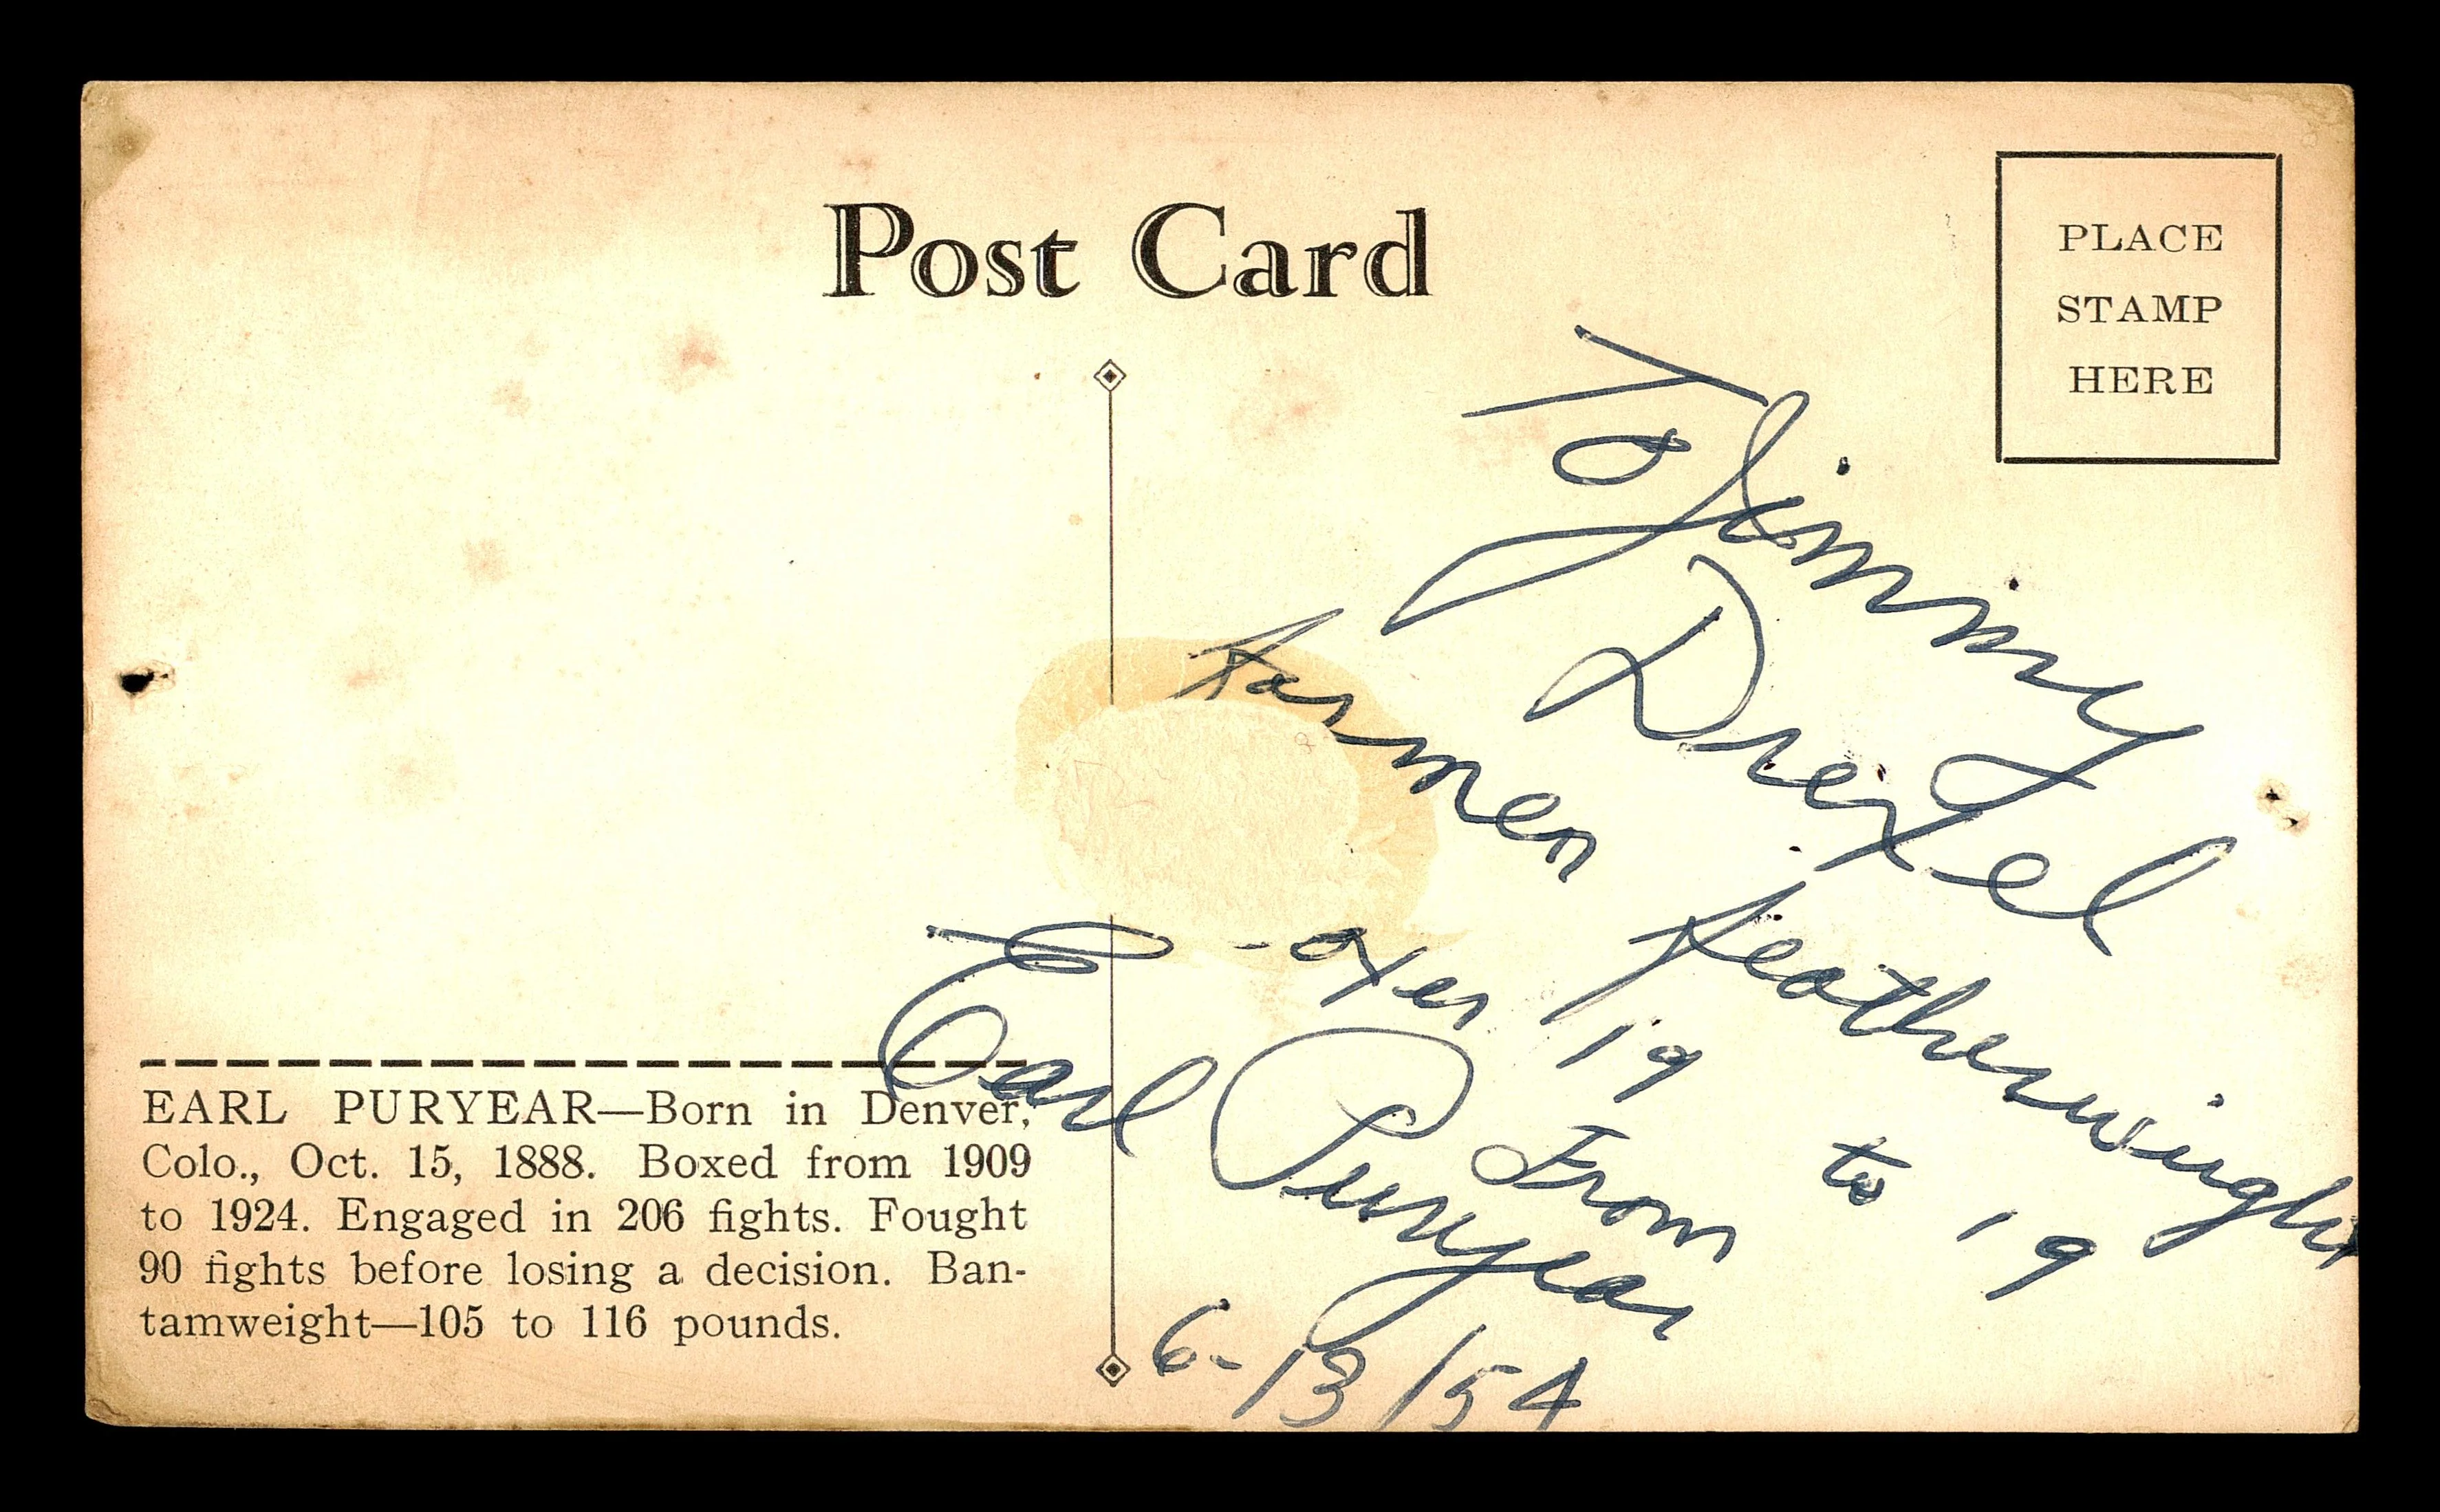 Post Card
PLACE
STAMP
HERE
To Jimmy
Drexel
Former featherweight
-oxer 19 From to 19
Earl Puryear
6-13/54
EARL PURYEAR—Born in Denver,
Colo., Oct. 15, 1888. Boxed from 1909
to 1924. Engaged in 206 fights. Fought
90 fights before losing a decision. Ban-
tamweight—105 to 116 pounds.